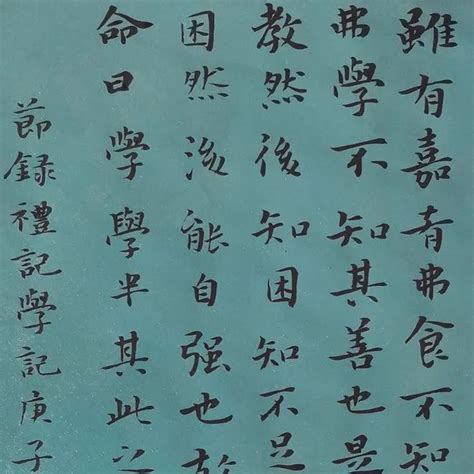 雖有嘉肴弗食不知
弗學不知其善也是
教然後知困知不足
困然後能自强也故
命曰學學半其此之
節錄禮記學記庚子